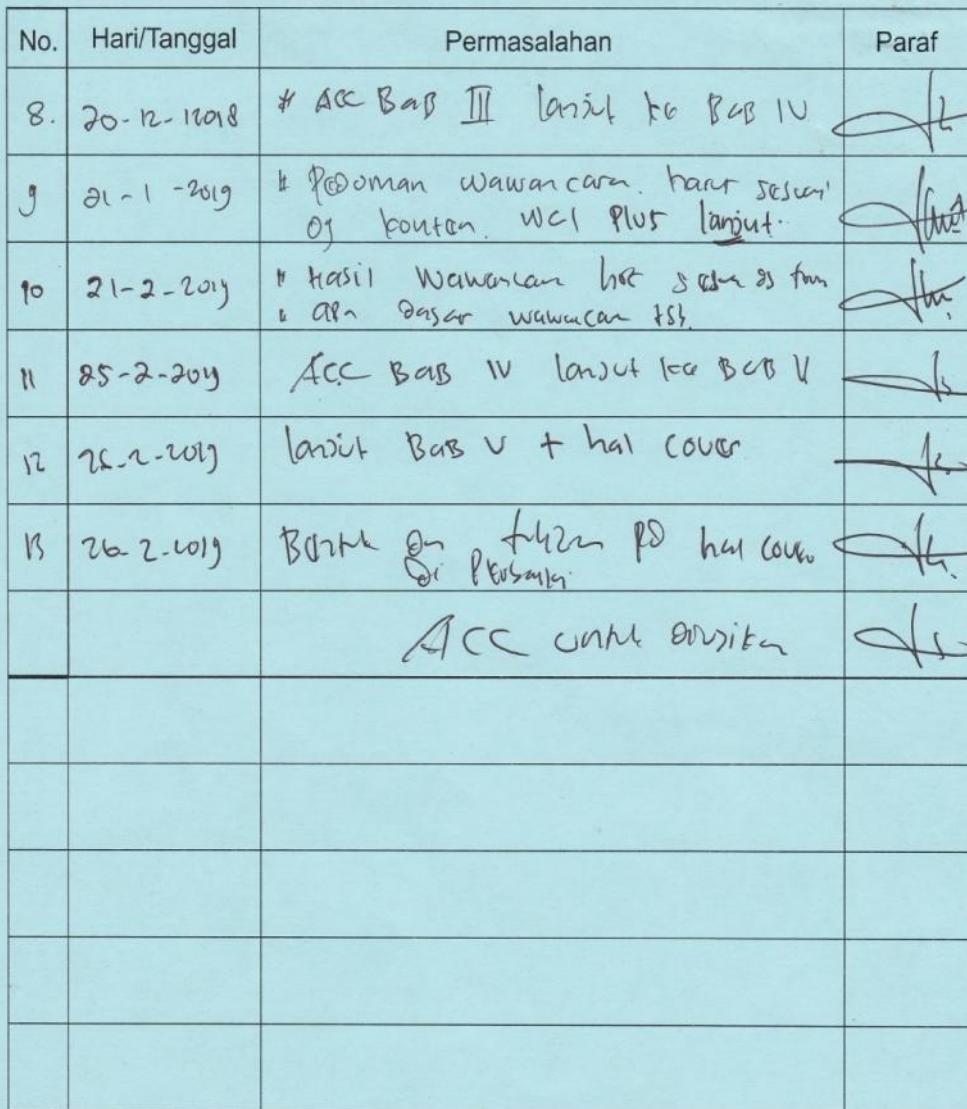 No. Hari/Tanggal Permasalahan Paraf
8. 20-12-12018 # ACC BaB III lanjut ke BaB IV
9 21-1-2019 # Pedoman wawancara harus sesuai
dg konten. WCI Plus lanjut.
10 21-2-2019 # Hasil wawancara
dasar wawancara tsb.
11 25-2-2019 ACC BaB IV lanjut ke BaB V
12 25-2-2019 lanjut BaB V + hal cover
13 26-2-2019 hal cover
Di
ACC untuk